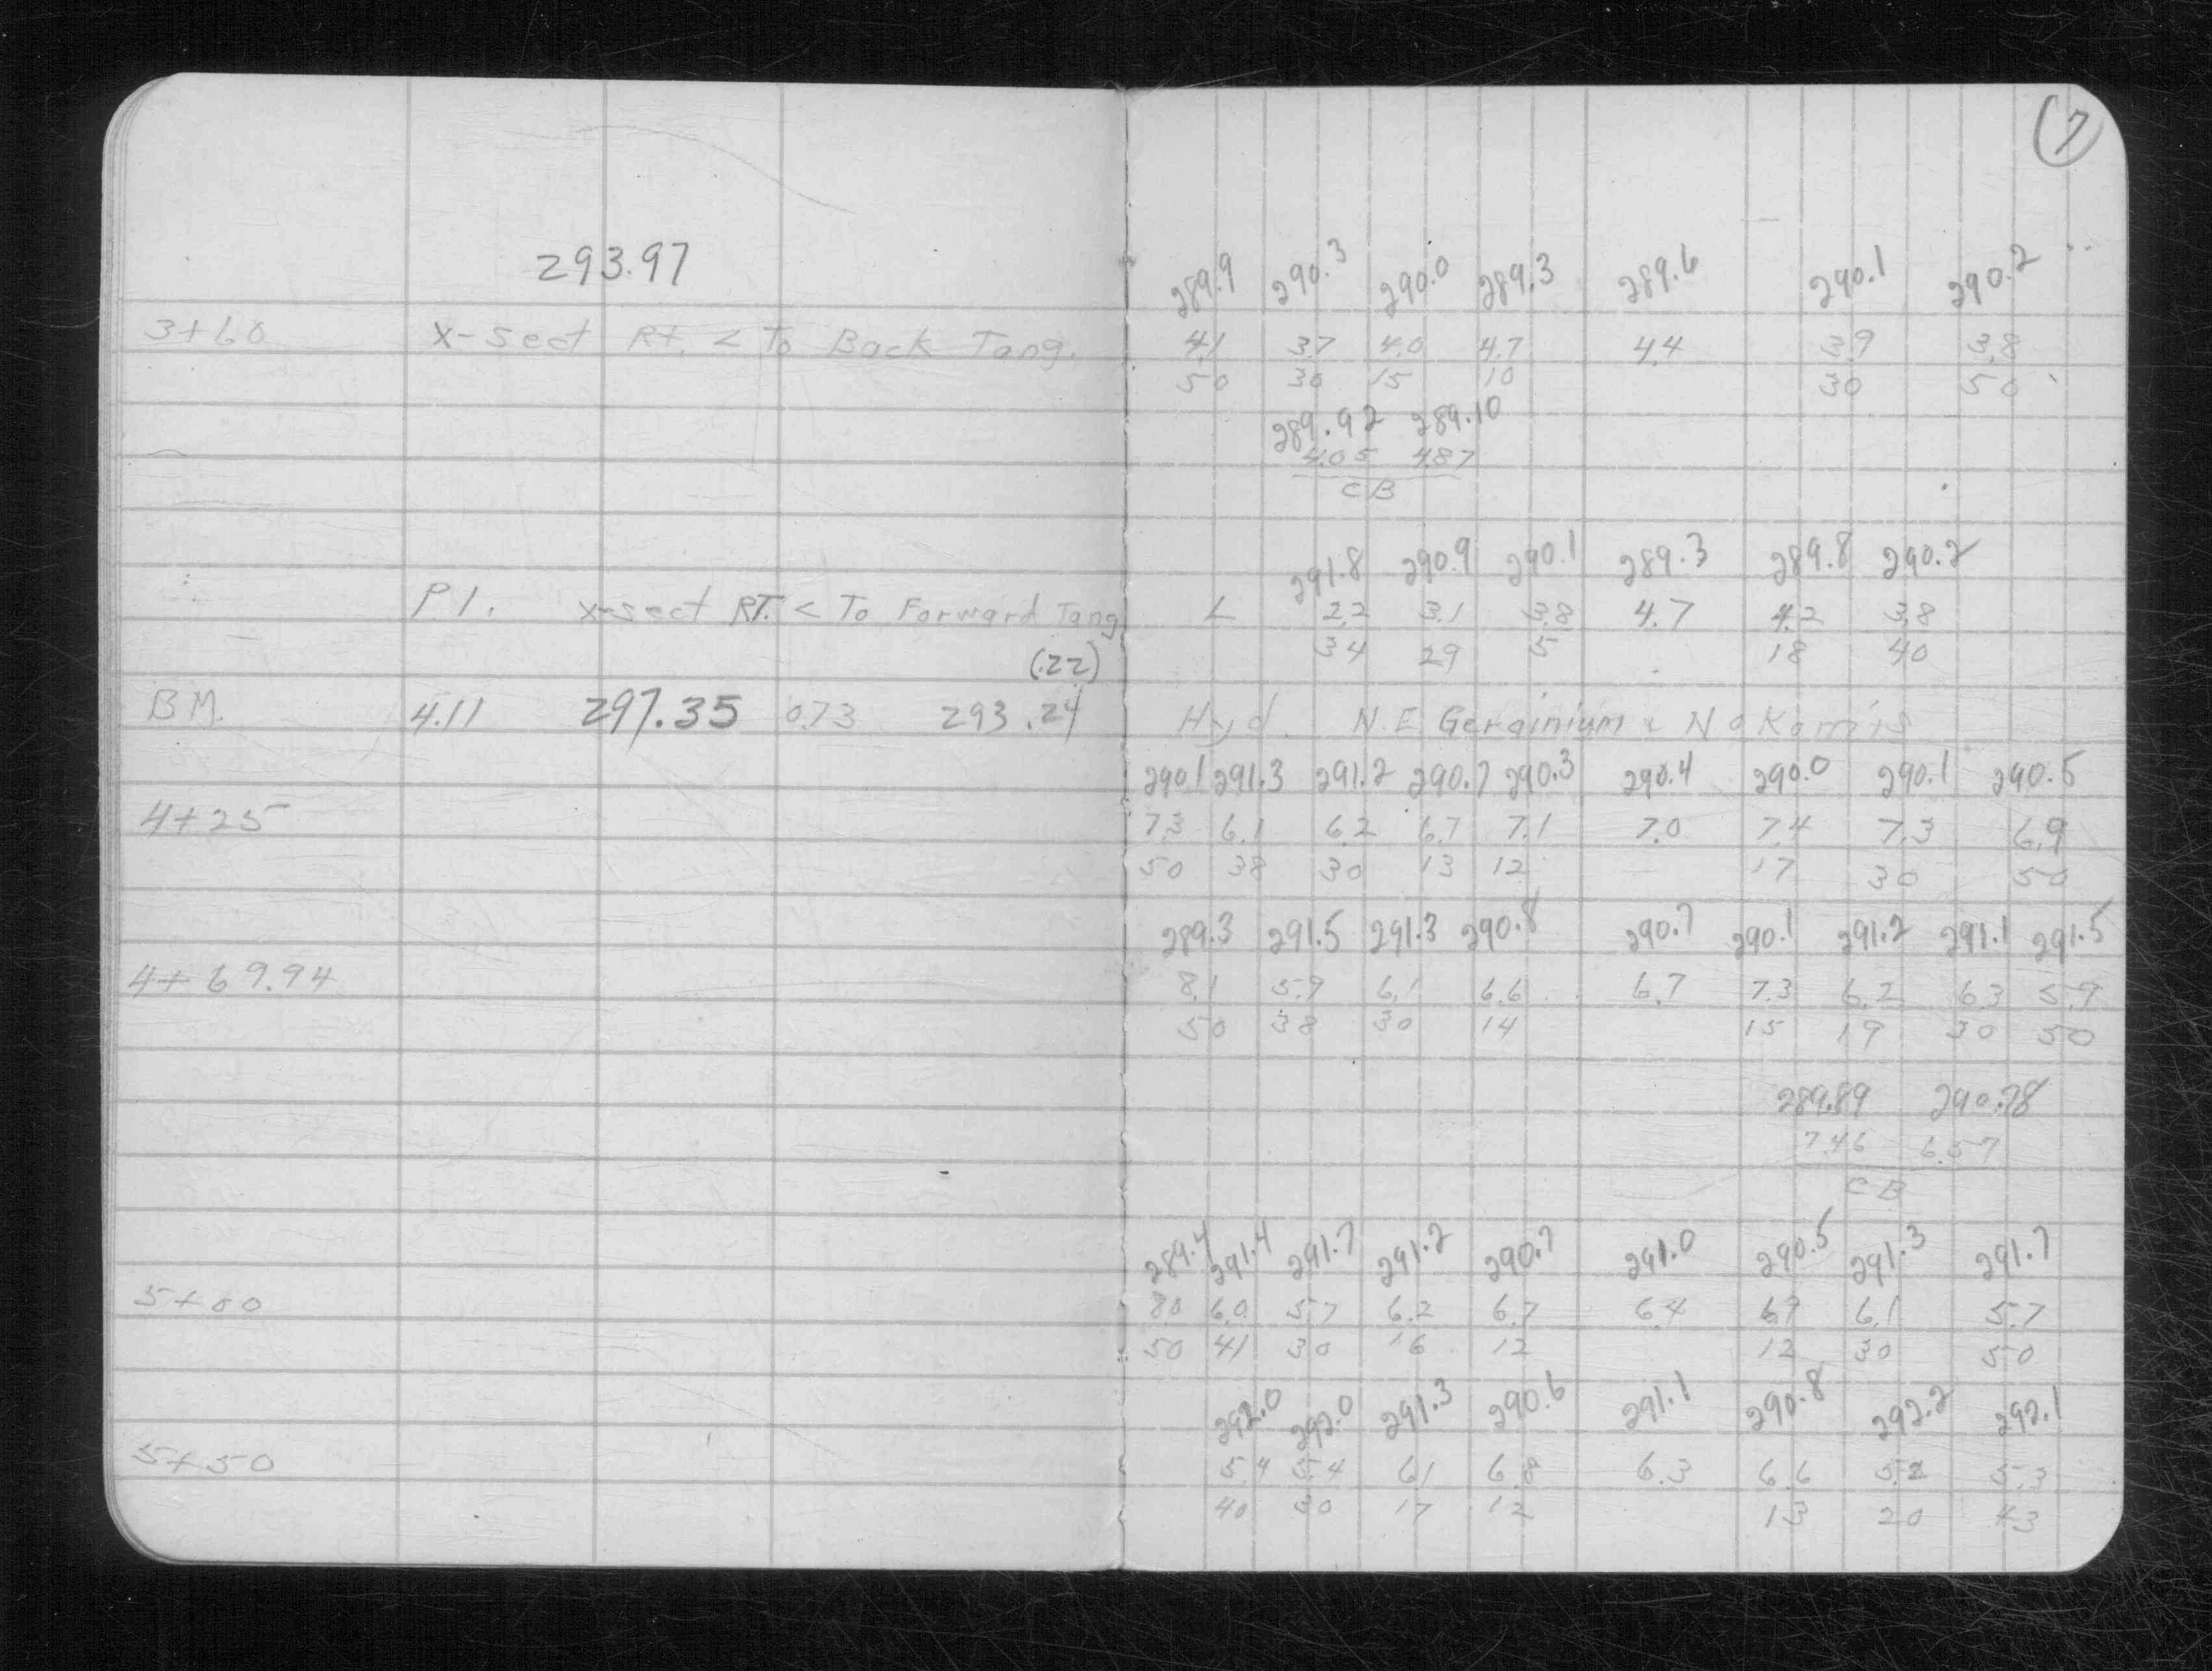 (7)
293.97
289.9 290.3 290.0 289.3 289.6 290.1 290.2
3+60 X-Sect Rt. < To Back Tang. 4.1 3.7 4.0 4.7 4.4 3.9 3.8
50 30 15 10 30 50
289.92 289.10
4.05 4.87
CB
291.8 290.9 290.1 289.3 289.8 290.2
P.I. X-sect RT. < To Forward Tang L 2.2 3.1 3.8 4.7 4.2 3.8
(.22) 34 29 5 18 40
BM. 4.11 297.35 0.73 293.24 Hyd. N.E Gerainium & Nokomis
290.1 291.3 291.2 290.7 290.3 290.4 290.0 290.1 290.5
4+25 7.3 6.1 6.2 6.7 7.1 7.0 7.4 7.3 6.9
50 38 30 13 12 17 30 50
289.3 291.5 291.3 290.8 290.7 290.1 291.2 291.1 291.5
4+69.94 8.1 5.9 6.1 6.6 6.7 7.3 6.2 6.3 5.9
50 38 30 14 15 19 30 50
289.89 290.78
7.46 6.57
CB
289.4 291.4 291.7 291.2 290.7 291.0 290.5 291.3 291.7
5+00 8.0 6.0 5.7 6.2 6.7 6.4 6.9 6.1 5.7
50 41 30 16 12 12 30 50
292.0 292.0 291.3 290.6 291.1 290.8 292.2 292.1
5+50 5.4 5.4 6.1 6.8 6.3 6.6 5.2 5.3
40 30 17 12 13 20 43